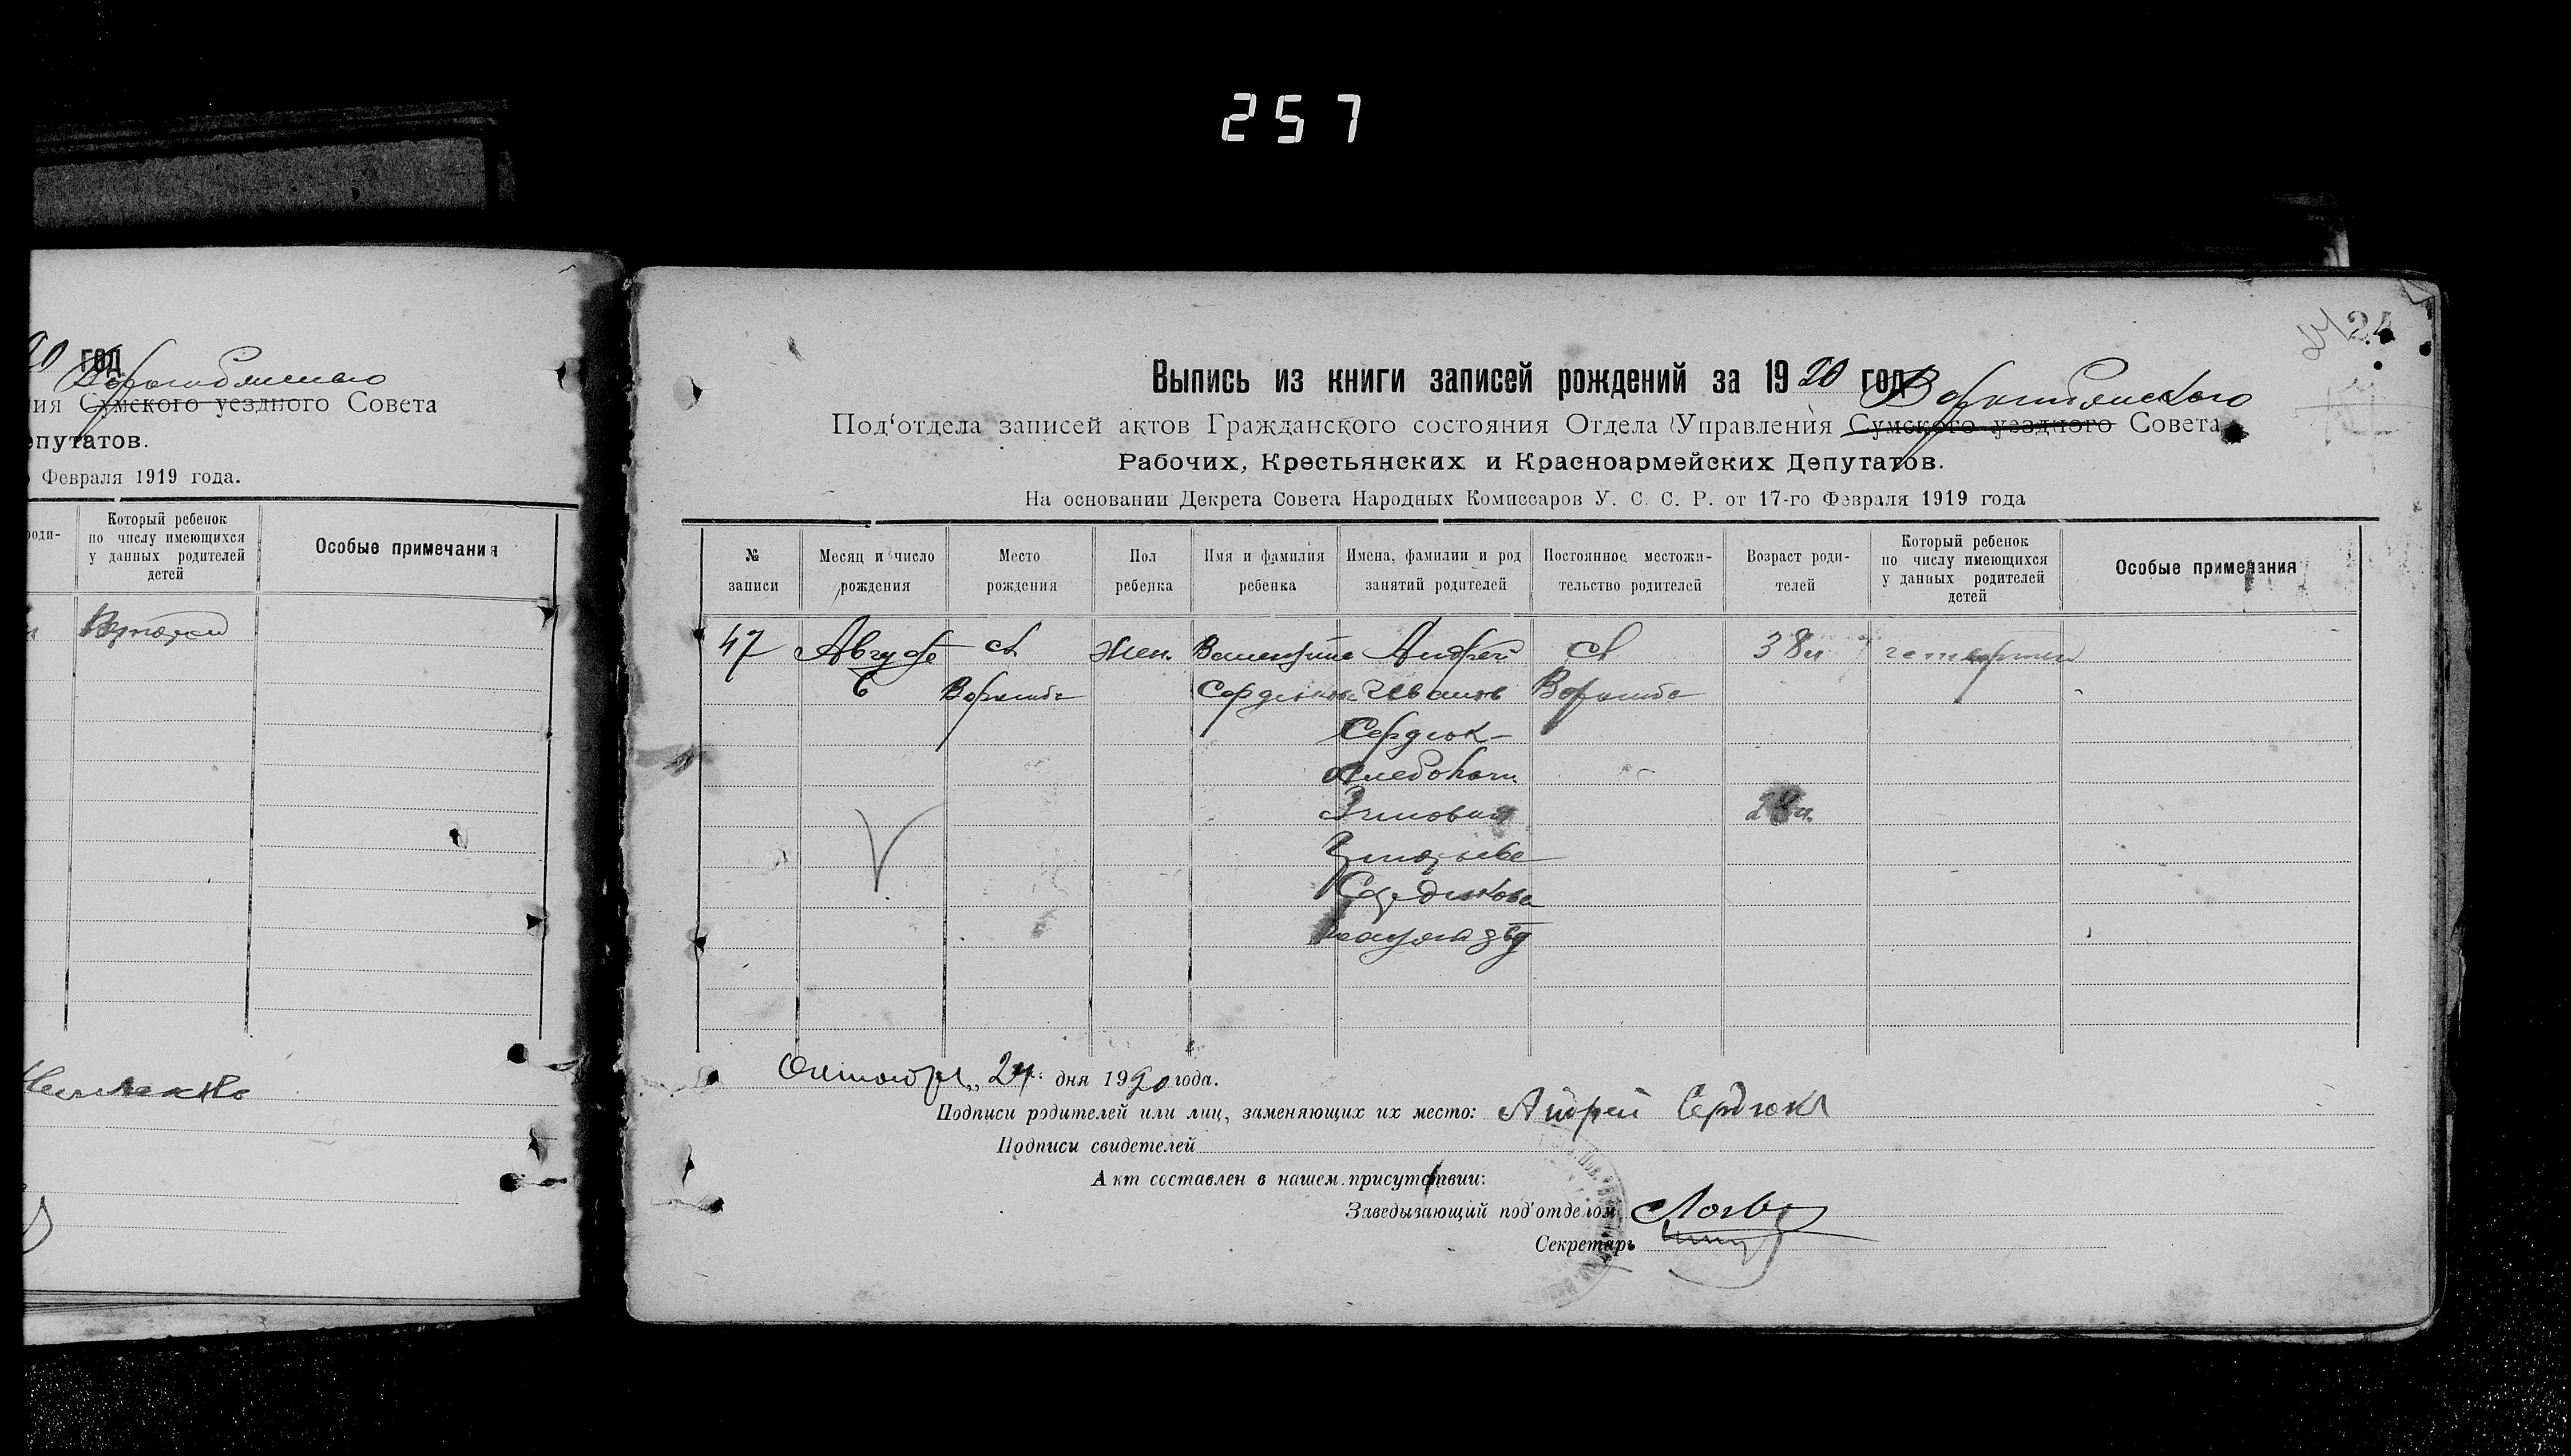 257
20 год
Ворожбянского
ия Сумского уездного Совета
епутатов.
Февраля 1919 года.
роди-
Который ребенок
по числу имеющихся
у данных родителей
детей
Особые примечания
24
Выпись из книги записей рождений за 1920 год
Ворожбянского
Под'отдела записей актов Гражданского состояния Отдела Управления Сумского уездного Совета
Рабочих, Крестьянских и Красноармейских Депутатов.
На основании Декрета Совета Народных Комиссаров У. С. С. Р. от 17-го Февраля 1919 года
№
записи
Месяц и число
рождения
Место
рождения
Пол
ребенка
Имя и фамилия
ребенка
Имена, фамилии и род
занятий родителей
Постоянное местожи-
тельство родителей
Возраст роди-
телей
Который ребенок
по числу имеющихся
у данных родителей
детей
Особые примечания
47
Август
6
с.
Ворожба
Жен.
Валентина
Сердюкова
Андрей
Иванов
Сердюк-
Хлебопаш.
Зиновия
Сердюкова
с.
Ворожба
38 л
28 л.
четвертый
Октября 24 дня 1920 года.
Подписи родителей или лиц, заменяющих их место: Андрей Сердюкъ
Подписи свидетелей
Акт составлен в нашем присутствии:
Заведывающий под'отделом
Секретарь